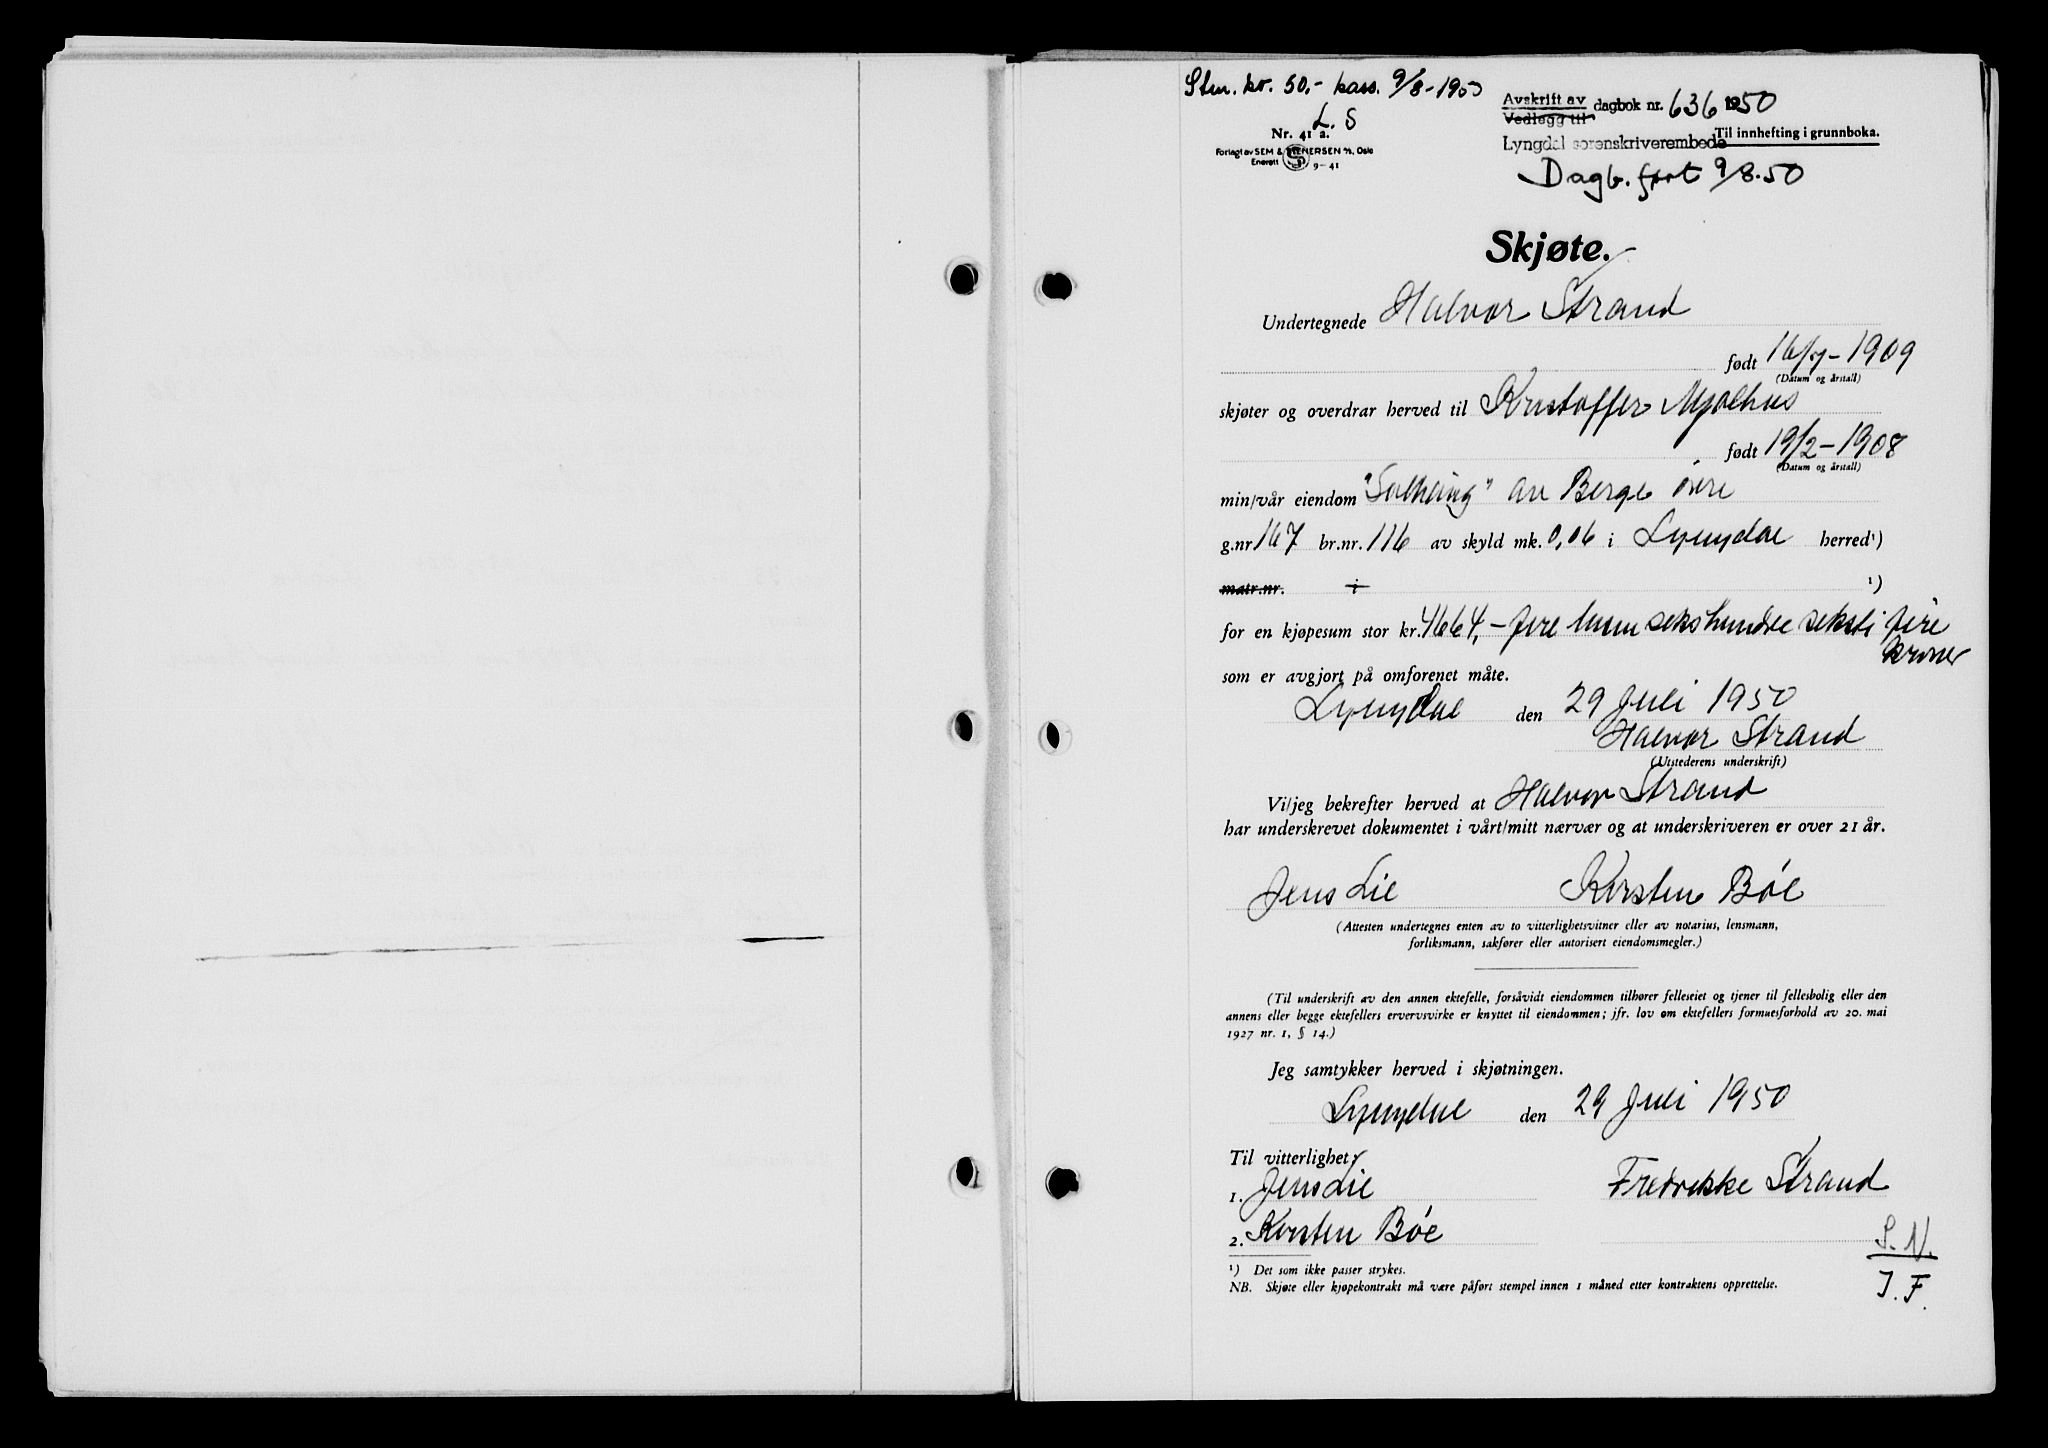 Stm. kr. 50,- kass. 9/8-1950
L. S
Nr. 41 a.
Forlagt av SEM & STENERSEN A/S, Oslo
Enerett 9-41
Avskrift av
Vedlegg til
dagbok nr. 636 1950
Til innhefting i grunnboka.
Lyngdal sorenskriverembede
Dagb. ført 9/8.50
Skjøte.
Undertegnede Halvor Strand
født 16/7-1909
(Datum og årstall)
skjøter og overdrar herved til Kristoffer Mjølhus
født 19/2-1908
(Datum og årstall)
min/vår eiendom "Solheing" av Berge øvre
g.nr 167 br.nr. 116 av skyld mk. 0,06 i Lyngdal herred¹)
matr.nr. i ¹)
for en kjøpesum stor kr. 4664,- fire tusen sekshundre seksti fire
kroner
som er avgjort på omforenet måte.
Lyngdal den 29 Juli 1950
Halvor Strand
(Utstederens underskrift)
Vi/jeg bekrefter herved at Halvor Strand
har underskrevet dokumentet i vårt/mitt nærvær og at underskriveren er over 21 år.
Jens Lie Kirsten Bóe
(Attesten undertegnes enten av to vitterlighetsvitner eller av notarius, lensmann,
forliksmann, sakfører eller autorisert eiendomsmegler.)
(Til underskrift av den annen ektefelle, forsåvidt eiendommen tilhører felleseiet og tjener til fellesbolig eller den
annens eller begge ektefellers ervervsvirke er knyttet til eiendommen; jfr. lov om ektefellers formuesforhold av 20. mai
1927 nr. 1, § 14.)
Jeg samtykker herved i skjøtningen.
Lyngdal den 29 Juli 1950
Til vitterlighet:
1. Jens Lie Fredrikke Strand
2. Kirsten Bóe
S. N.
J. F.
¹) Det som ikke passer strykes.
NB. Skjøte eller kjøpekontrakt må være påført stempel innen 1 måned etter kontraktens opprettelse.